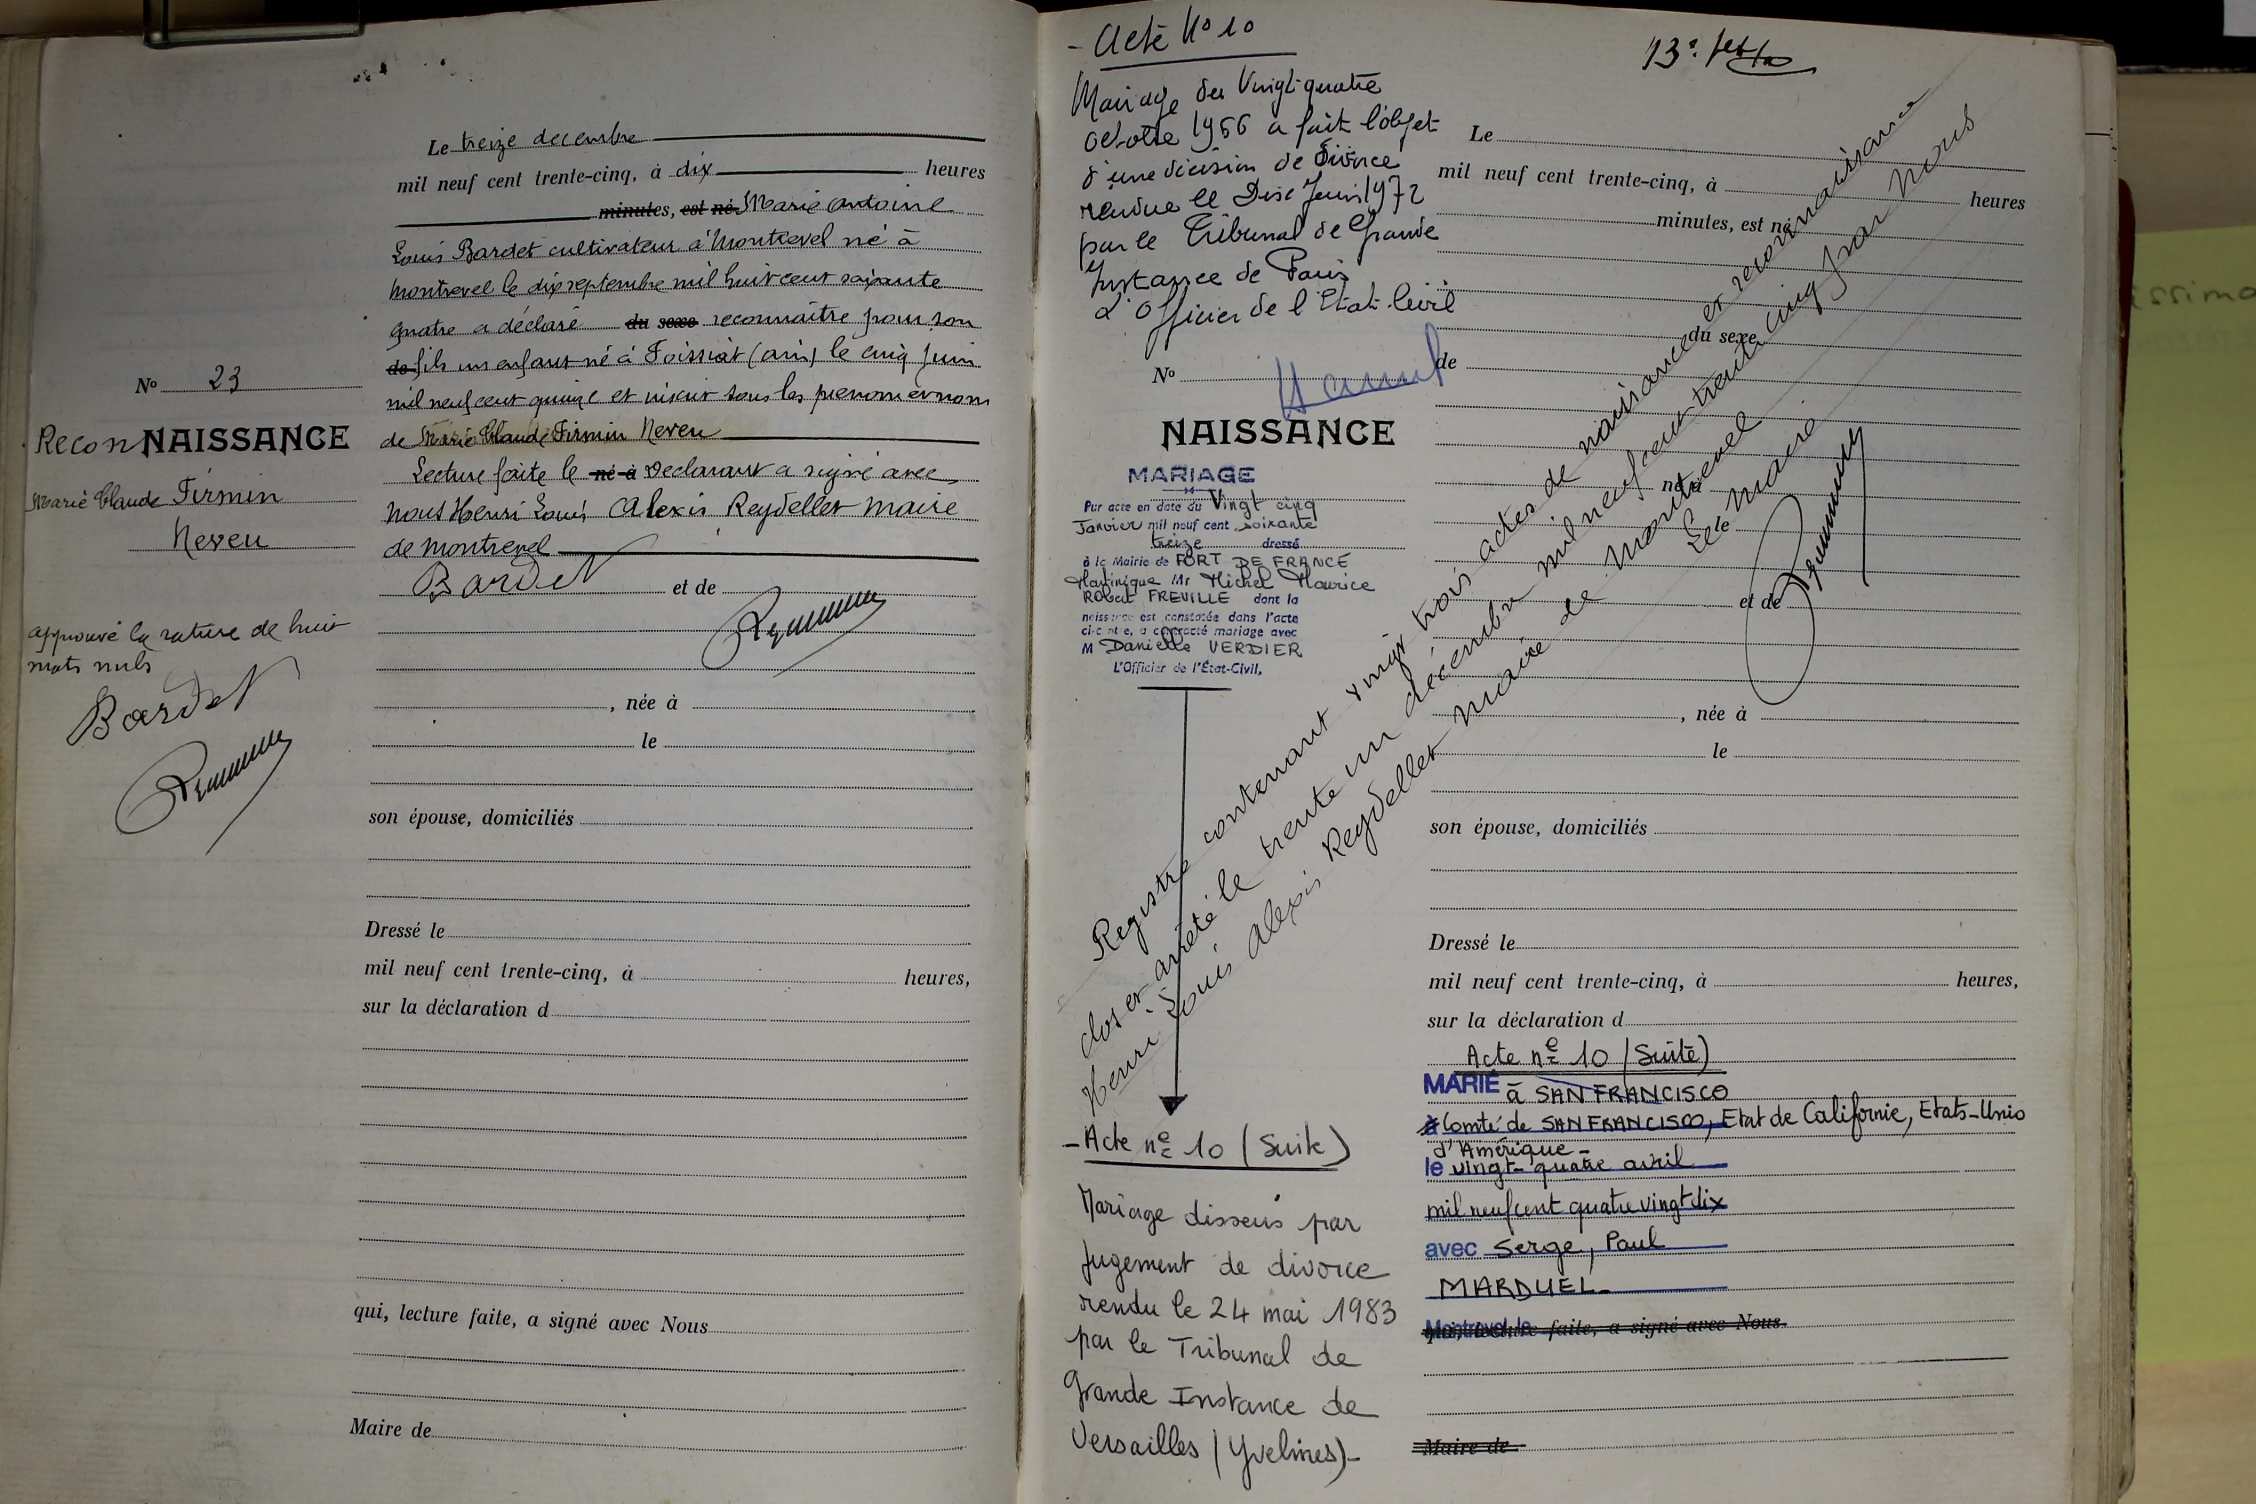 Le treize decembre
mil neuf cent trente-cinq, à dix heures
minutes, est né Marie Antoine
Louis Bardet cultivateur à Montrevel né à
Montrevel le dix septembre mil huit cent soixante
quatre a déclaré du sexe reconnaître pour son
de fils un enfant né à Foissiat (ain) le cinq juin
mil neuf cent quinze et inscrit sous les prenoms et nom
de Marie Claude Firmin Neveu
Lecture faite le né à Declarant a signé avec
nous Henri Louis Alexis Reydellet maire
de Montrevel
Bardet et de
, née à
le
son épouse, domiciliés
Dressé le
mil neuf cent trente-cinq, à heures,
sur la déclaration d
qui, lecture faite, a signé avec Nous
Maire de
No 23
Recon NAISSANCE
Marie Claude Firmin
Neveu
approuvé la rature de huit
mots nuls
Bardet
- Acte No 10
Mariage du Vingt-quatre
octobre 1956 a fait l'objet
d'une décision de Divorce
rendue le Dix Juin 1972
par le Tribunal de Grande
Instance de Paris
L'Officier de l'Etat-Civil
No
NAISSANCE
MARIAGE
Par acte en date du Vingt cinq
Janvier mil neuf cent soixante
treize dressé
à la Mairie de FORT DE FRANCE
Martinique Mr Michel Maurice
Robert FREVILLE dont la
naissance est constatée dans l'acte
ci-contre, a contracté mariage avec
M Danielle VERDIER
L'Officier de l'État-Civil,
- Acte no 10 (Suite)
Mariage dissous par
jugement de divorce
rendu le 24 mai 1983
par le Tribunal de
Grande Instance de
Versailles (Yvelines)-
Le
mil neuf cent trente-cinq, à heures
minutes, est né
du sexe
de
né à
le
et de
, née à
le
son épouse, domiciliés
Dressé le
mil neuf cent trente-cinq, à heures,
sur la déclaration d
Acte no 10 (Suite)
MARIÉ à SAN FRANCISCO
à Comté de SAN FRANCISCO, Etat de Californie, Etats-Unis
d'Amérique -
le vingt-quatre avril
mil neuf cent quatre vingt dix
avec Serge, Paul
MARDUEL-
Montrevel le
qui, lecture faite, a signé avec Nous
Maire de
Registre contenant vingt trois actes de naissances et reconnaissance
clos et arrêté le trente un décembre mil neuf cent trente cinq par nous
Henri Louis Alexis Reydellet Maire de Montrevel
Le Maire